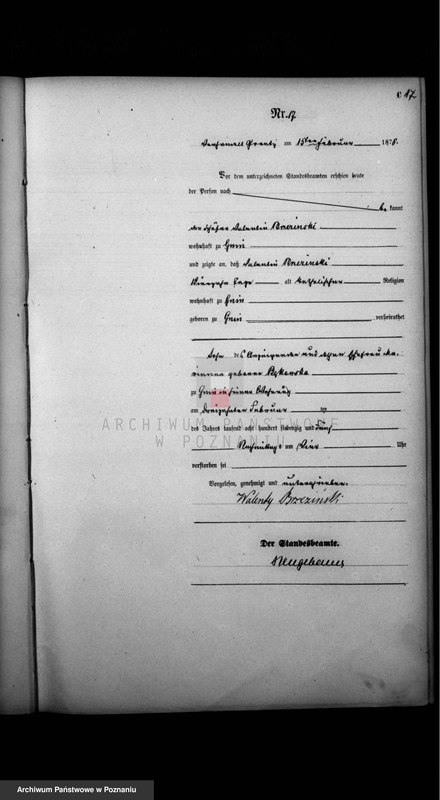 C 17
Nr. 17
am 15ten Februar 1876.
Vor dem unterzeichneten Standesbeamten erschien heute
der Person nach
be kannt
der Valentin Brzezinski
wohnhaft zu Gnin
und zeigte an, daß Valentin Brzezinski
Vierzehn Tage alt katholischer Religion
wohnhaft zu Gnin
geboren zu Gnin verheirathet
Sohn des Anzeigenden und dessen Ehefrau Ma-
rianna geborene
zu Gnin in seiner Wohnung
am Februar
des Jahres tausend acht hundert siebenzig und
Nachmittags um Vier Uhr
verstorben sei
Vorgelesen, genehmigt und unterschrieben.
Walenty Brzeziński
Der Standesbeamte.
Neugebauer
ARCHIWUM PAŃSTWOWE
W POZNANIU
Archiwum Państwowe w Poznaniu